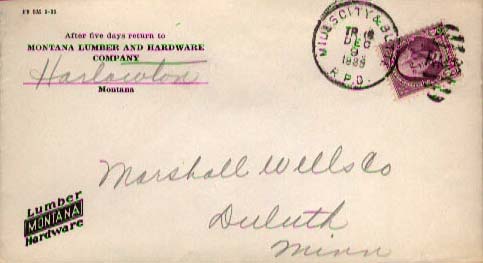 FO 2AL 5-35
After five days return to
MONTANA LUMBER AND HARDWARE
COMPANY
Harlowton
Montana
MILES CITY &
TR 16
DEC
9
R.P.O.
Marshall Wells Co
Duluth
Minn
Lumber
MONTANA
Hardware